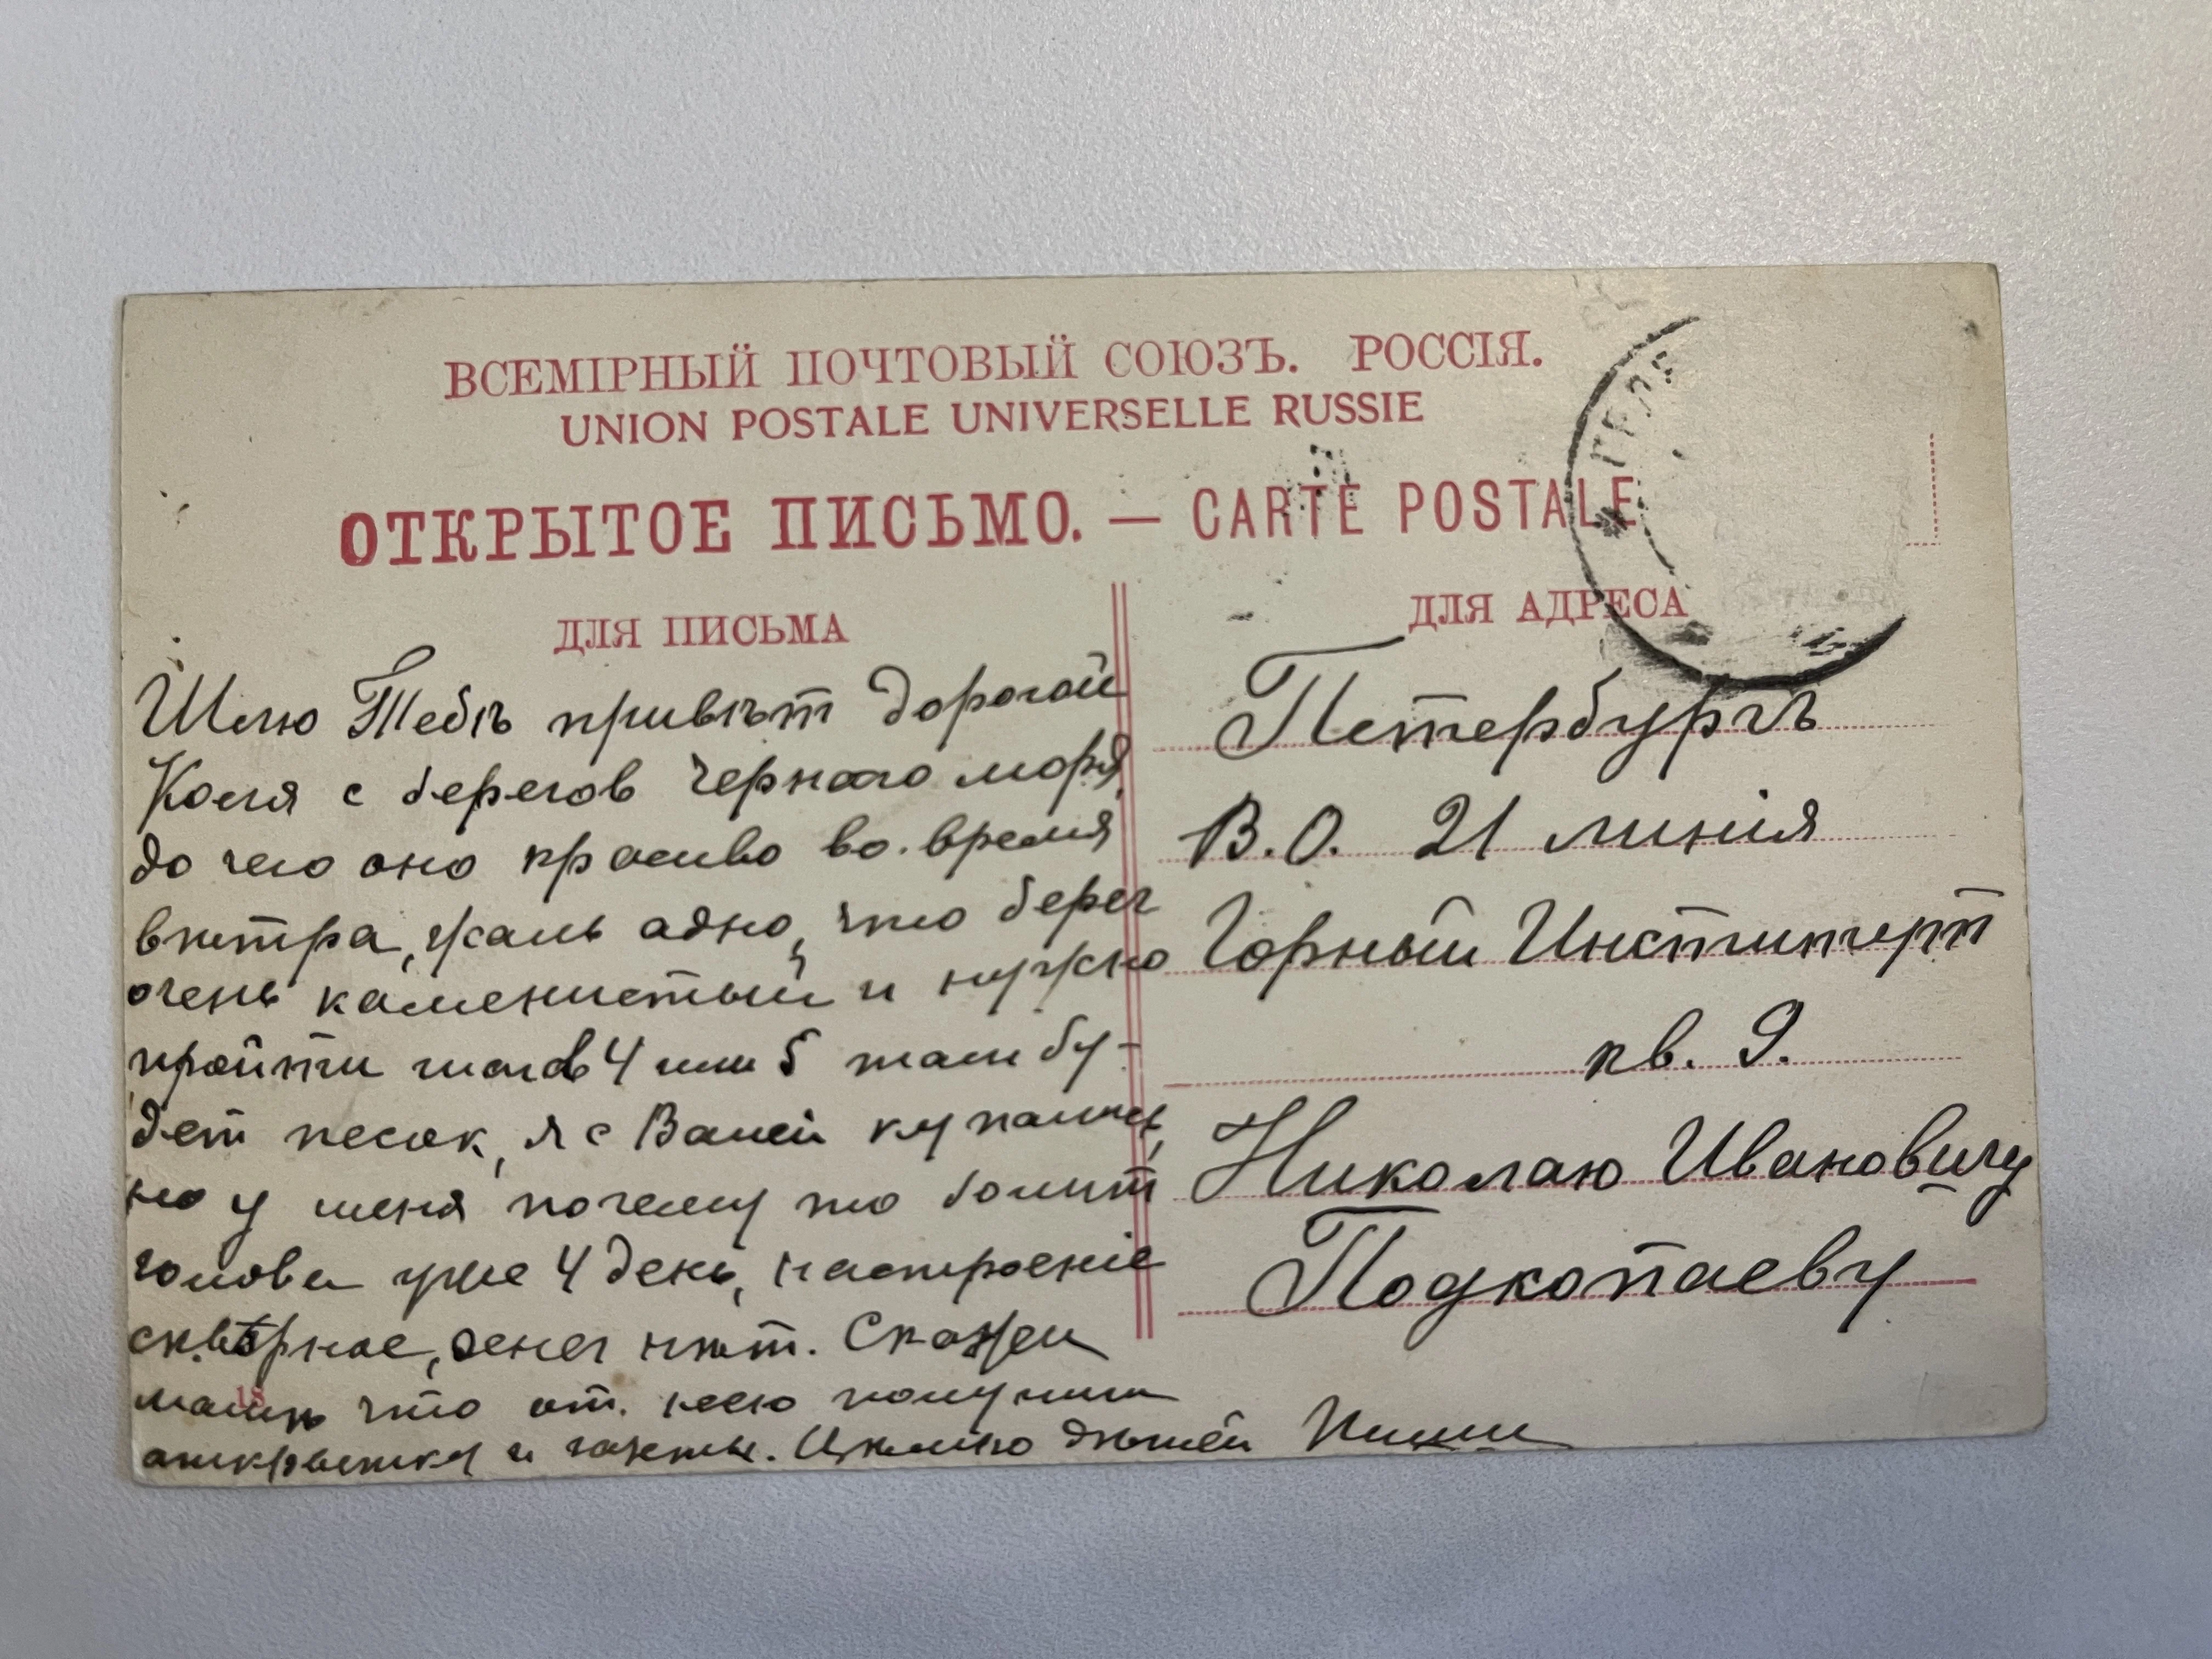 ВСЕМІРНЫЙ ПОЧТОВЫЙ СОЮЗЪ. РОССІЯ.
UNION POSTALE UNIVERSELLE RUSSIE
ОТКРЫТОЕ ПИСЬМО. — CARTE POSTALE
ДЛЯ ПИСЬМА
Шлю Тебѣ привѣт дорогой
Коля с берегов Чернаго моря,
до чего оно красиво во.время
вѣтра, жаль адно, что берег
очень каменистый и нужно
пройти шагов 4 или 5 там бу-
дет песок, я с Ваней купались,
но у меня почему то болит
голова уже 4 день, настроеніе
скверное, денег нѣт. Скажи
мамѣ что от. нею получили
открытку и газеты. Цѣлую
18
Пиши
ДЛЯ АДРЕСА
Петербургъ
В.О. 21 линія
Горный Институт
кв. 9.
Николаю Ивановичу
Подкопаеву